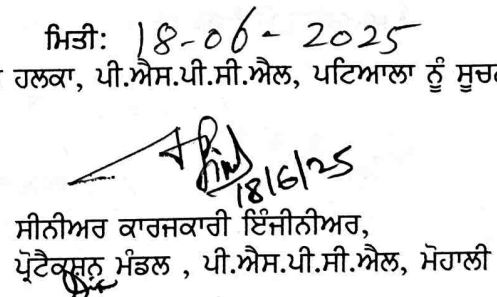 ਮਿਤੀ: 18-06-2025
ਹਲਕਾ, ਪੀ.ਐਸ.ਪੀ.ਸੀ.ਐਲ, ਪਟਿਆਲਾ ਨੂੰ
18/6/25
ਸੀਨੀਅਰ ਕਾਰਜਕਾਰੀ ਇੰਜੀਨੀਅਰ,
ਪ੍ਰੋਟੈਕਸ਼ਨ ਮੰਡਲ , ਪੀ.ਐਸ.ਪੀ.ਸੀ.ਐਲ, ਮੋਹਾਲੀ